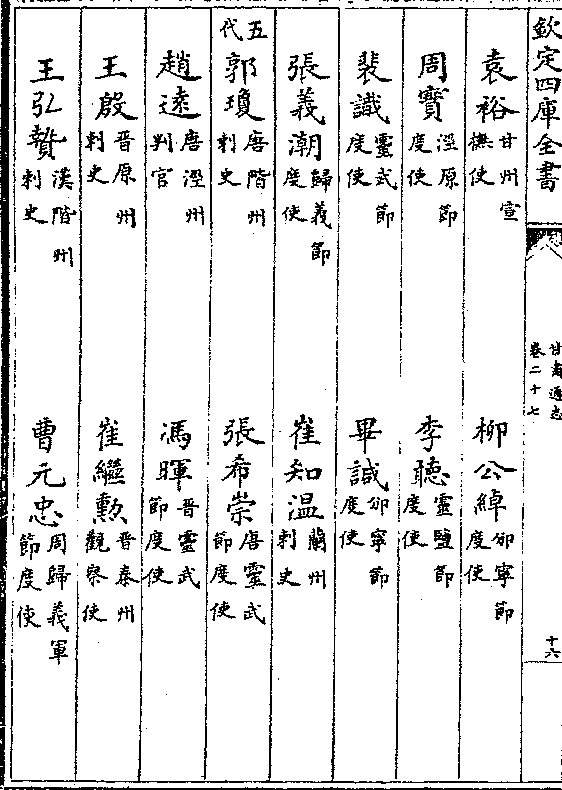 欽定四庫全書
甘肅通志
卷二十七
十六
袁裕甘州宣撫使　柳公綽邠寧節度使
周寶涇原節度使　李聽靈鹽節度使
裴識靈武節度使　畢諴邠寧節度使
張義潮歸義節度使　崔知温蘭州刺史
五代
郭瓊唐階州刺史　張希崇唐靈武節度使
趙遠唐涇州判官　馮暉晉靈武節度使
王殷晉原州刺史　崔繼勲晉秦州觀察使
王弘贄漢階州刺史　曹元忠周歸義軍節度使